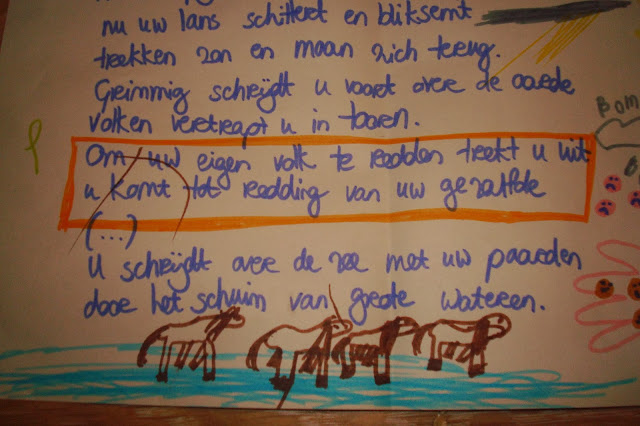 nu uw lans schittert en bliksemt
trekken zon en maan zich terug.
Grimmig schrijdt u voort over de aarde
volken vertrapt u in toorn.
Om uw eigen volk te redden trekt u uit
u komt tot redding van uw gezalfde
(...)
U schrijdt over de zee met uw paarden
door het schuim van grote wateren.
BOM